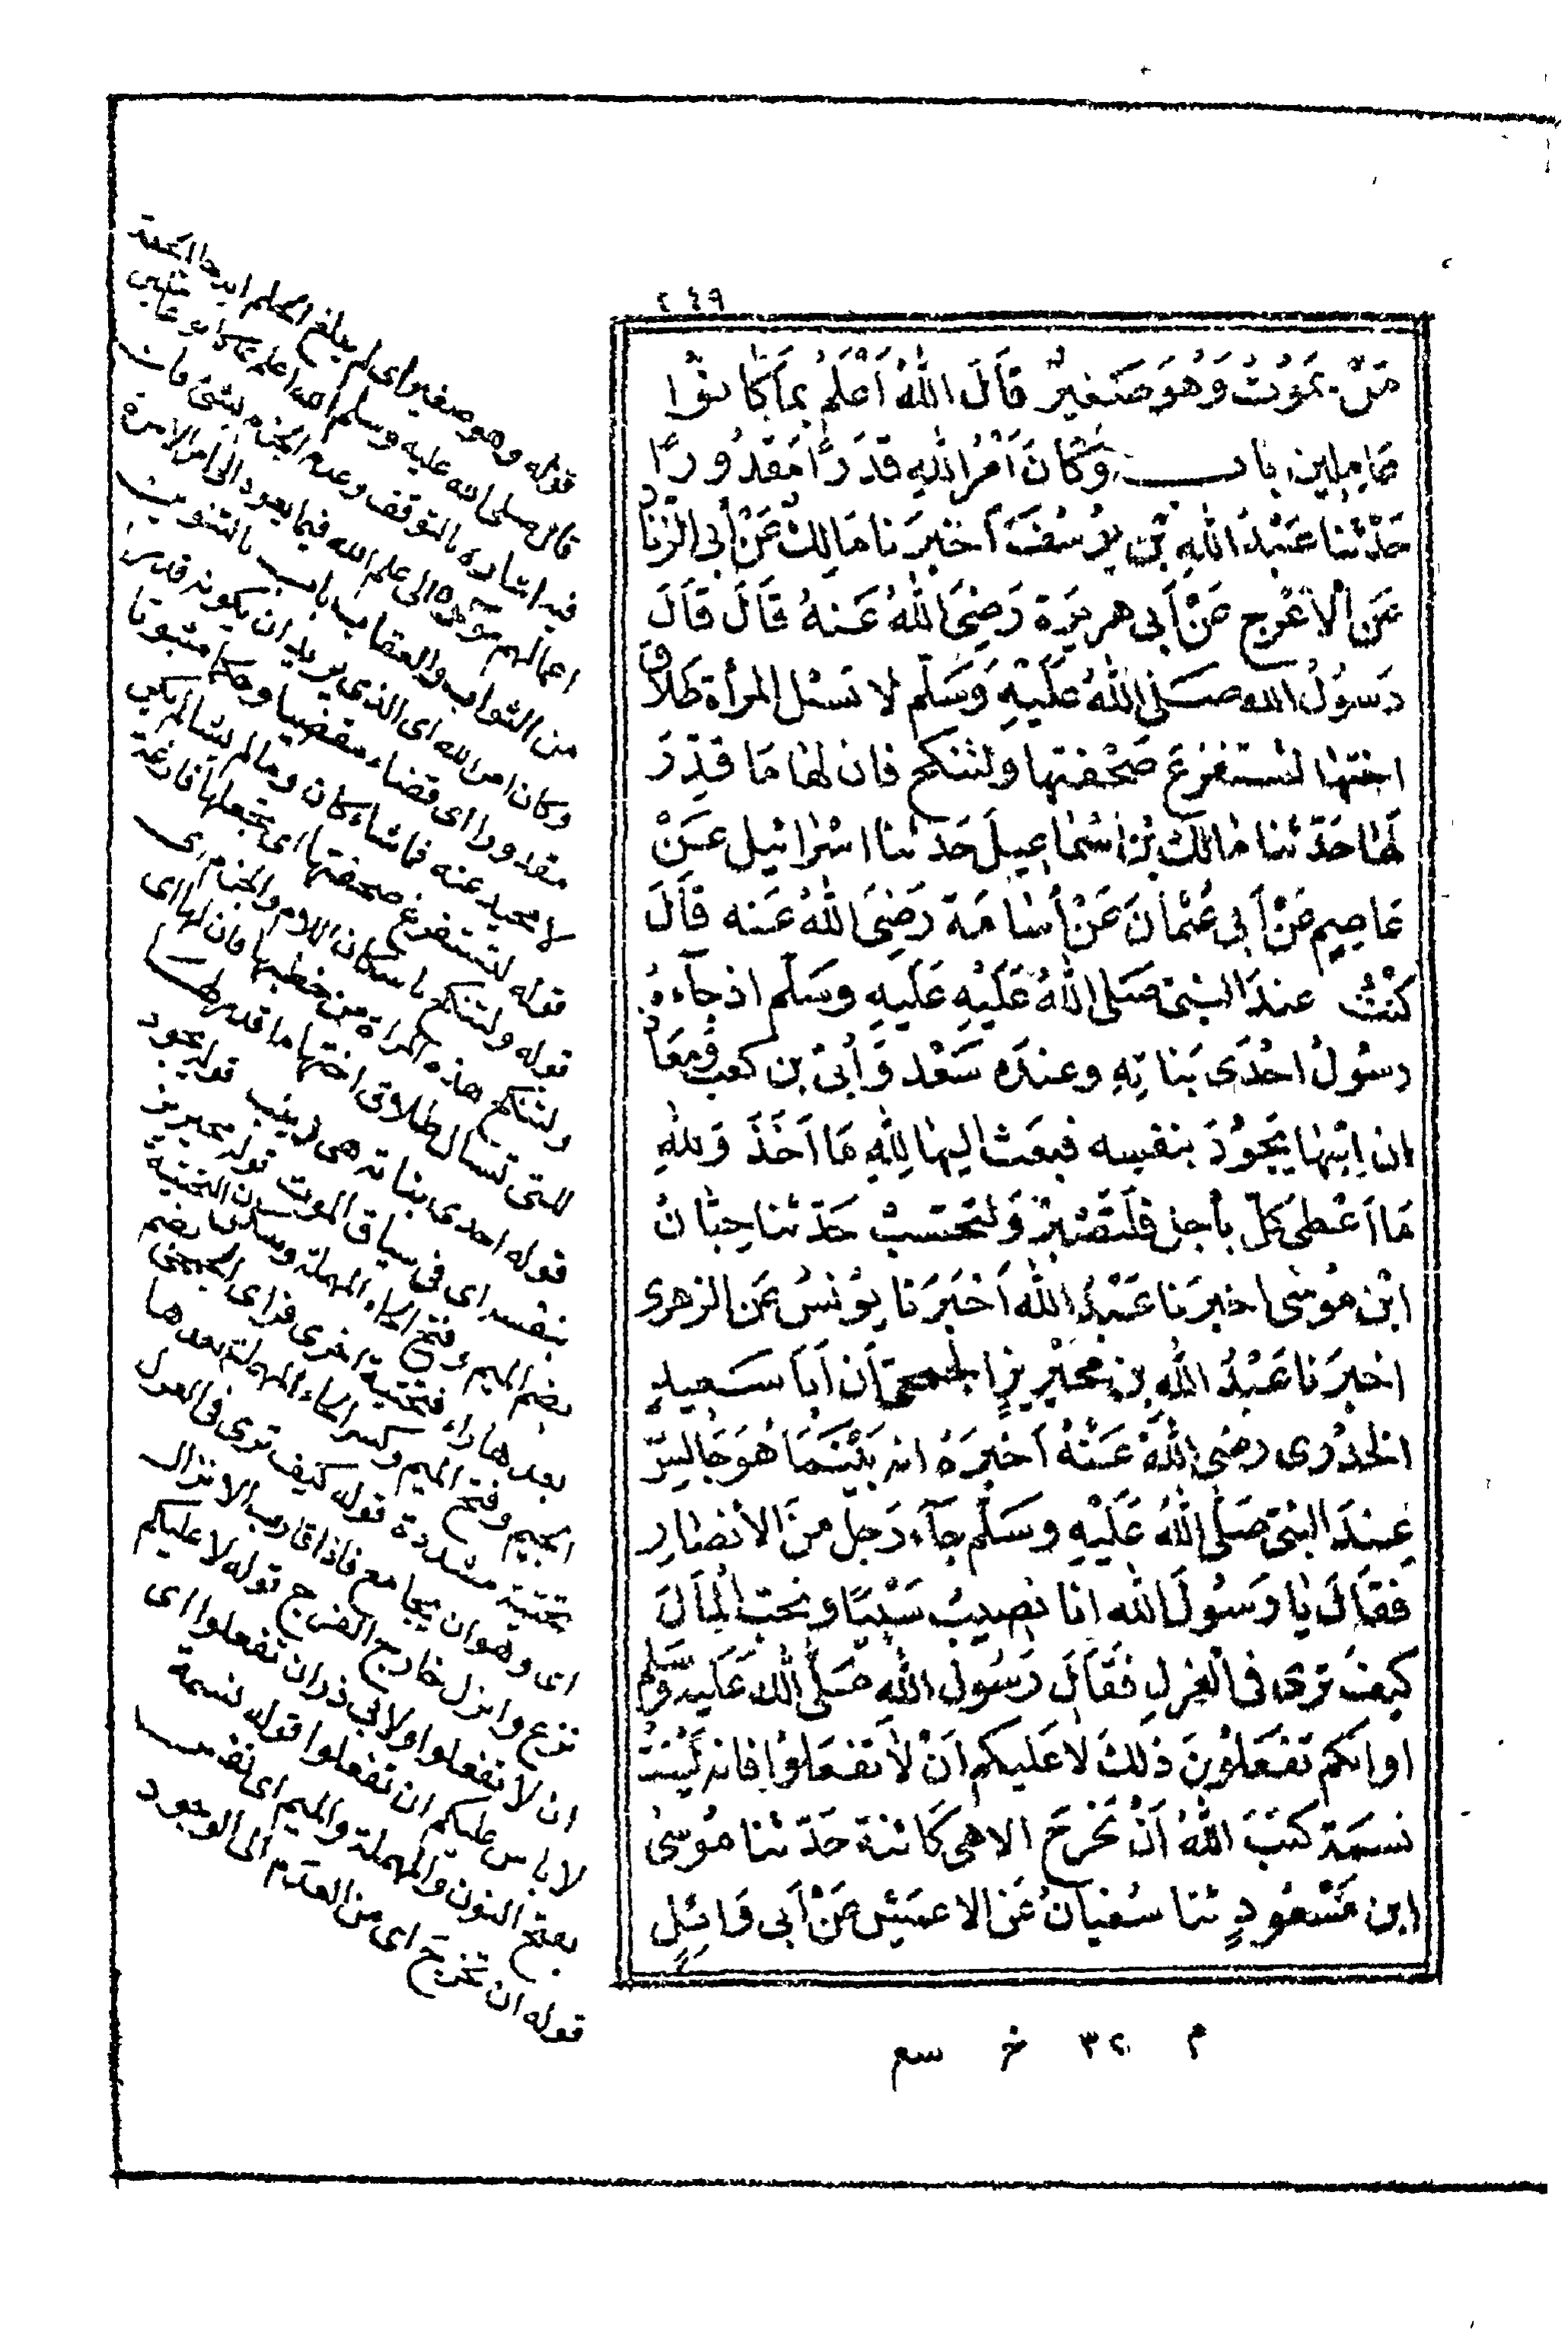 ٢٤٩
مَنْ يَمُوتُ وَهُوَ صَغيرٌ قَالَ اللهُ أَعْلَمُ بِمَا كَانُوا
عَامِلين باب وَكَانَ أَمْرُ اللهِ قَدَرًا مَقْدُورًا
حَدّثنا عَبْدُ اللهِ بْنُ يُوسُفَ أَخْبَرَنا مَالِكٌ عَنْ أَبي الزِّنَادِ
عَنِ الأَعْرَجِ عَنْ أَبي هريرَة رَضِيَ اللهُ عَنهُ قَالَ قَالَ
رَسُولُ الله صَلى اللهُ عَلَيْهِ وَسَلّم لا تسئل المرأة طَلاقَ
اختها لتستفرغ صَحْفتها ولتنكح فان لها مَا قدِّرَ
لَها حَدّثنا مالك بْنُ اسْماعِيلَ حَدّثنا اسْرائيل عَنْ
عَاصِمٍ عَنْ أَبي عُثمانَ عَنْ أُسَامَة رَضِيَ اللهُ عَنه قَالَ
كُنْتُ عندَ النبيّ صَلى اللهُ عَلَيْهِ عَلَيهِ وسَلّم اذ جَآءهُ
رسُولُ احْدَى بَناتِهِ وعندَه سَعْد وَأُبيّ بن كعب ومُعَاذ
ان ابْنَها يَجُودُ بنفسِه فبعَث اليها لِلّهِ مَا أَخَذَ وَللهِ
مَا أَعْطى كلّ بأجل فَلتَصْبِرْ وَلتحتسبْ حَدّثنا حِبّانُ
ابْن مُوسى اخبرَنا عَبْدُ الله أَخْبَرَنا يُونُسُ عَن الزهري
اخبرَنا عَبْدُ اللهِ بن مُحَيْريزٍ الجمحيّ أن أبَا سَعِيدٍ
الخدْري رضي اللهُ عَنْهُ أَخبرَهُ انه بَيْنَمَا هُوَ جَالِسٌ
عِندَ النبيّ صَلّى اللهُ عَلَيْهِ وسَلّم جَآءَ رَجل منَ الأنصارِ
فقَالَ يا رَسُولَ الله انا نصِيبُ سَبْيًا ونحبّ المالَ
كيفَ ترى في العَزلِ فقَالَ رَسُول اللهِ صَلّى اللهُ عَلَيهِ وَسَلّم
اوانكم تفْعَلوُنَ ذلكَ لا عَليكم انْ لا تَفعَلوُا فانه ليْسَتْ
نسمَة كتبَ اللهُ أنْ تَخْرُجَ الا هي كَائنة حَدّثنا مُوسى
ابن مَسْعُودٍ ثنا سُفيانُ عَن الاعمَشِ عَنْ أبي وَائِلٍ
م ٣٢ خ سع
قوله وهو صغير اي لم يبلغ الحلم ايدخل الجنة
قال صلى الله عليه وسلم الله اعلم بما كانوا عاملين
فيه اشارة بالتوقف وعدم الجزم بشئ فان
اعمالهم موكولة الى علم الله فيما يعود الى امر الاخرة
من الثواب والعقاب باب بالتنوين
وكان امر الله اي الذي يريد ان يكونه قدرا
مقدورا اي قضاء مقضيا وحكما مثبوتا
لا محيد عنه فما شاء كان وما لم يشا لم يكن
قوله لتستفرغ صحفتها اي تجعلها فارغة
قوله ولتنكح باسكان اللام والجزم اي
ولتنكح هذه المراة من خطبها فان لها اي
للتي تسال طلاق اختها ما قدر لها
قوله احدى بناته هي زينب قوله يجود
بنفسه اي في سياق الموت قوله محيريز
بضم الميم وفتح الحاء المهملة وسكون التحتية
بعدها راء فتحتية اخرى فزاي الجمحي بضم
الجيم وفتح الميم وكسر الحاء المهملة بعدها
تحتية مشددة قوله كيف ترى في العزل
اي وهو ان يجامع فاذا قارب الانزال
نزع وانزل خارج الفرج قوله لا عليكم
ان لا تفعلوا ولابي ذر ان تفعلوا اي
لا باس عليكم ان تفعلوا قوله نسمة
بفتح النون والمهملة والميم اي نفس
قوله ان تخرج اي من العدم الى الوجود